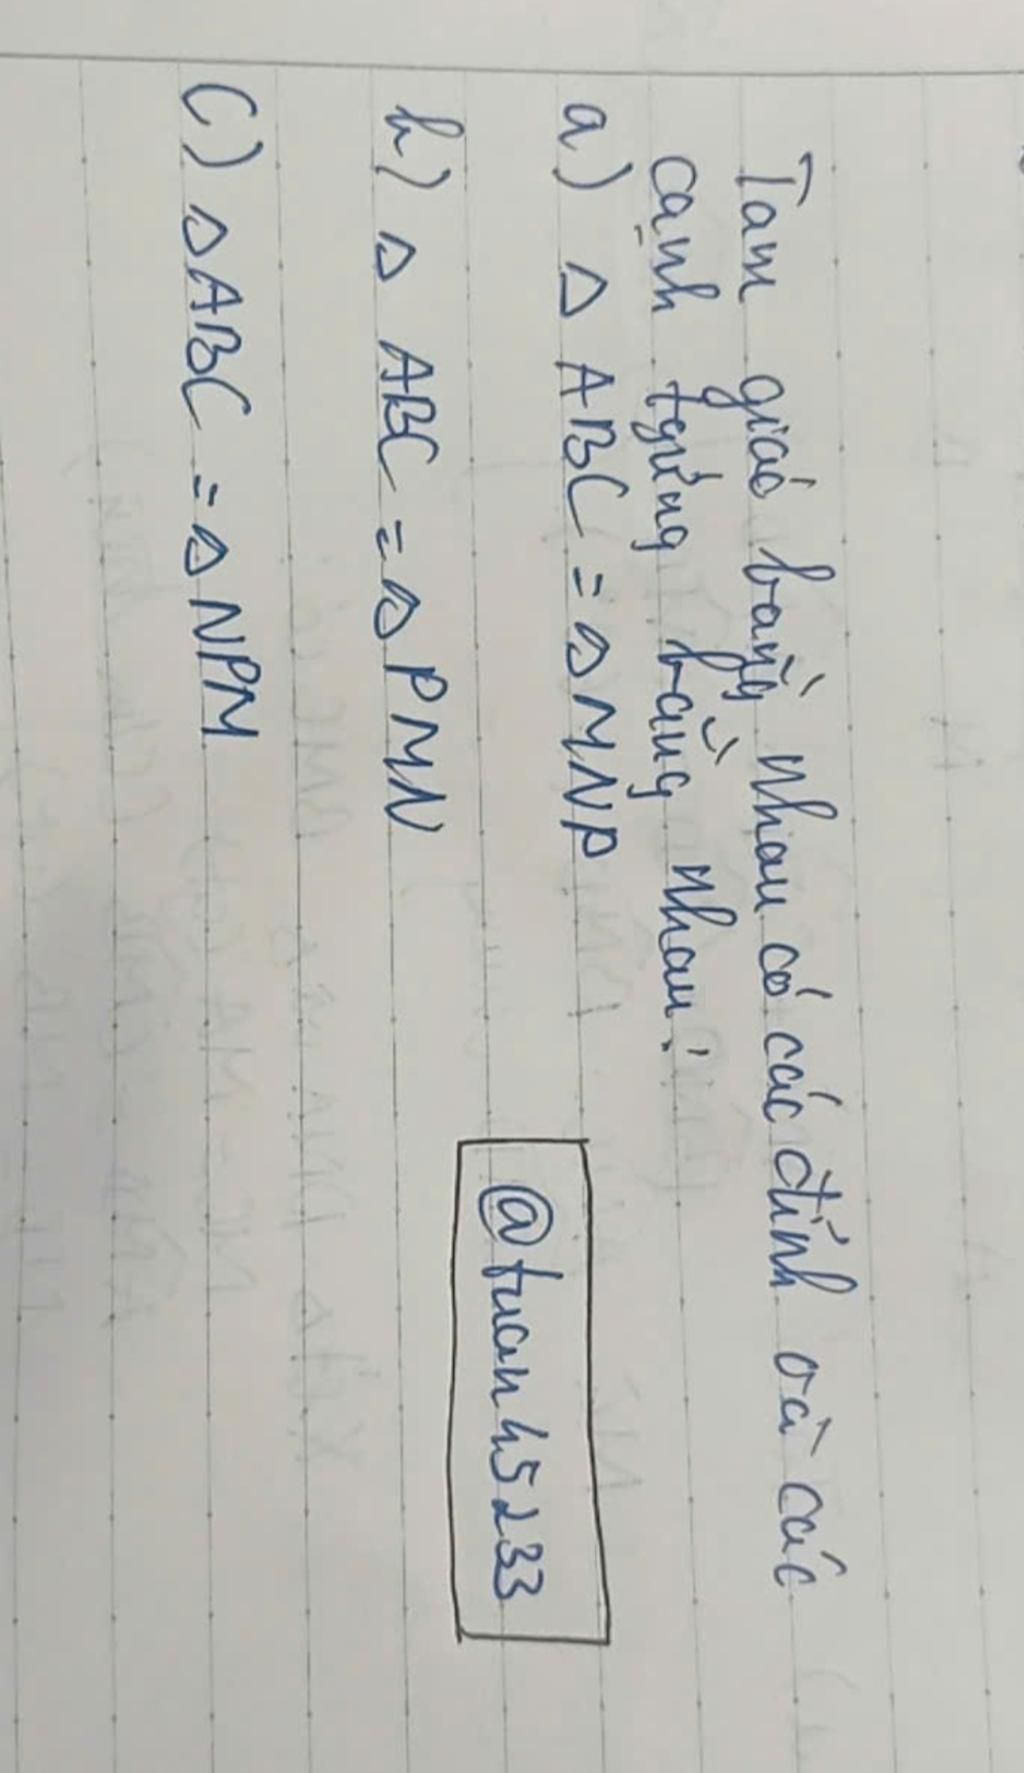 Tam giác bằng nhau có các đỉnh và các
cạnh tgứng bằng nhau.
a) Δ ABC = Δ MNP
b) Δ ABC = Δ PMN
c) Δ ABC = Δ NPM
@tuanh5233